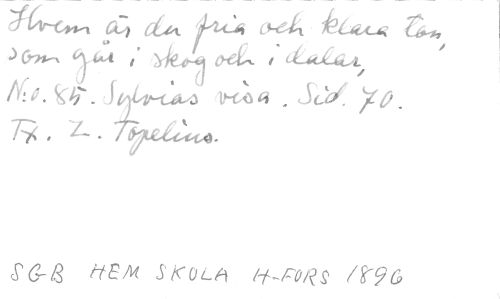 Hvem är du fria och klara ton,
som går i skog och i dalar,
N:o. 85. Sylvias visa. Sid. 70.
Tx. Z. Topelius.
SGB HEM SKOLA H-FORS 1896